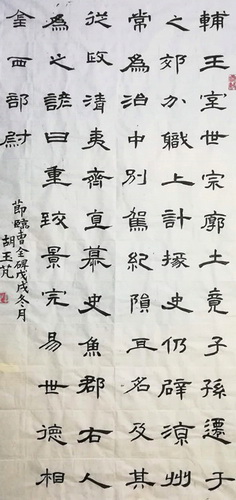 輔王室世宗廓土竟子孫遷于
之郊分職上計掾史仍辟涼州
常為治中別駕紀隕耳名及其
從政清夷齊直慕史魚郡右人
為之諺曰重致景完易世德相
金西部尉
節臨曹全碑戊戌冬月
胡玉芃